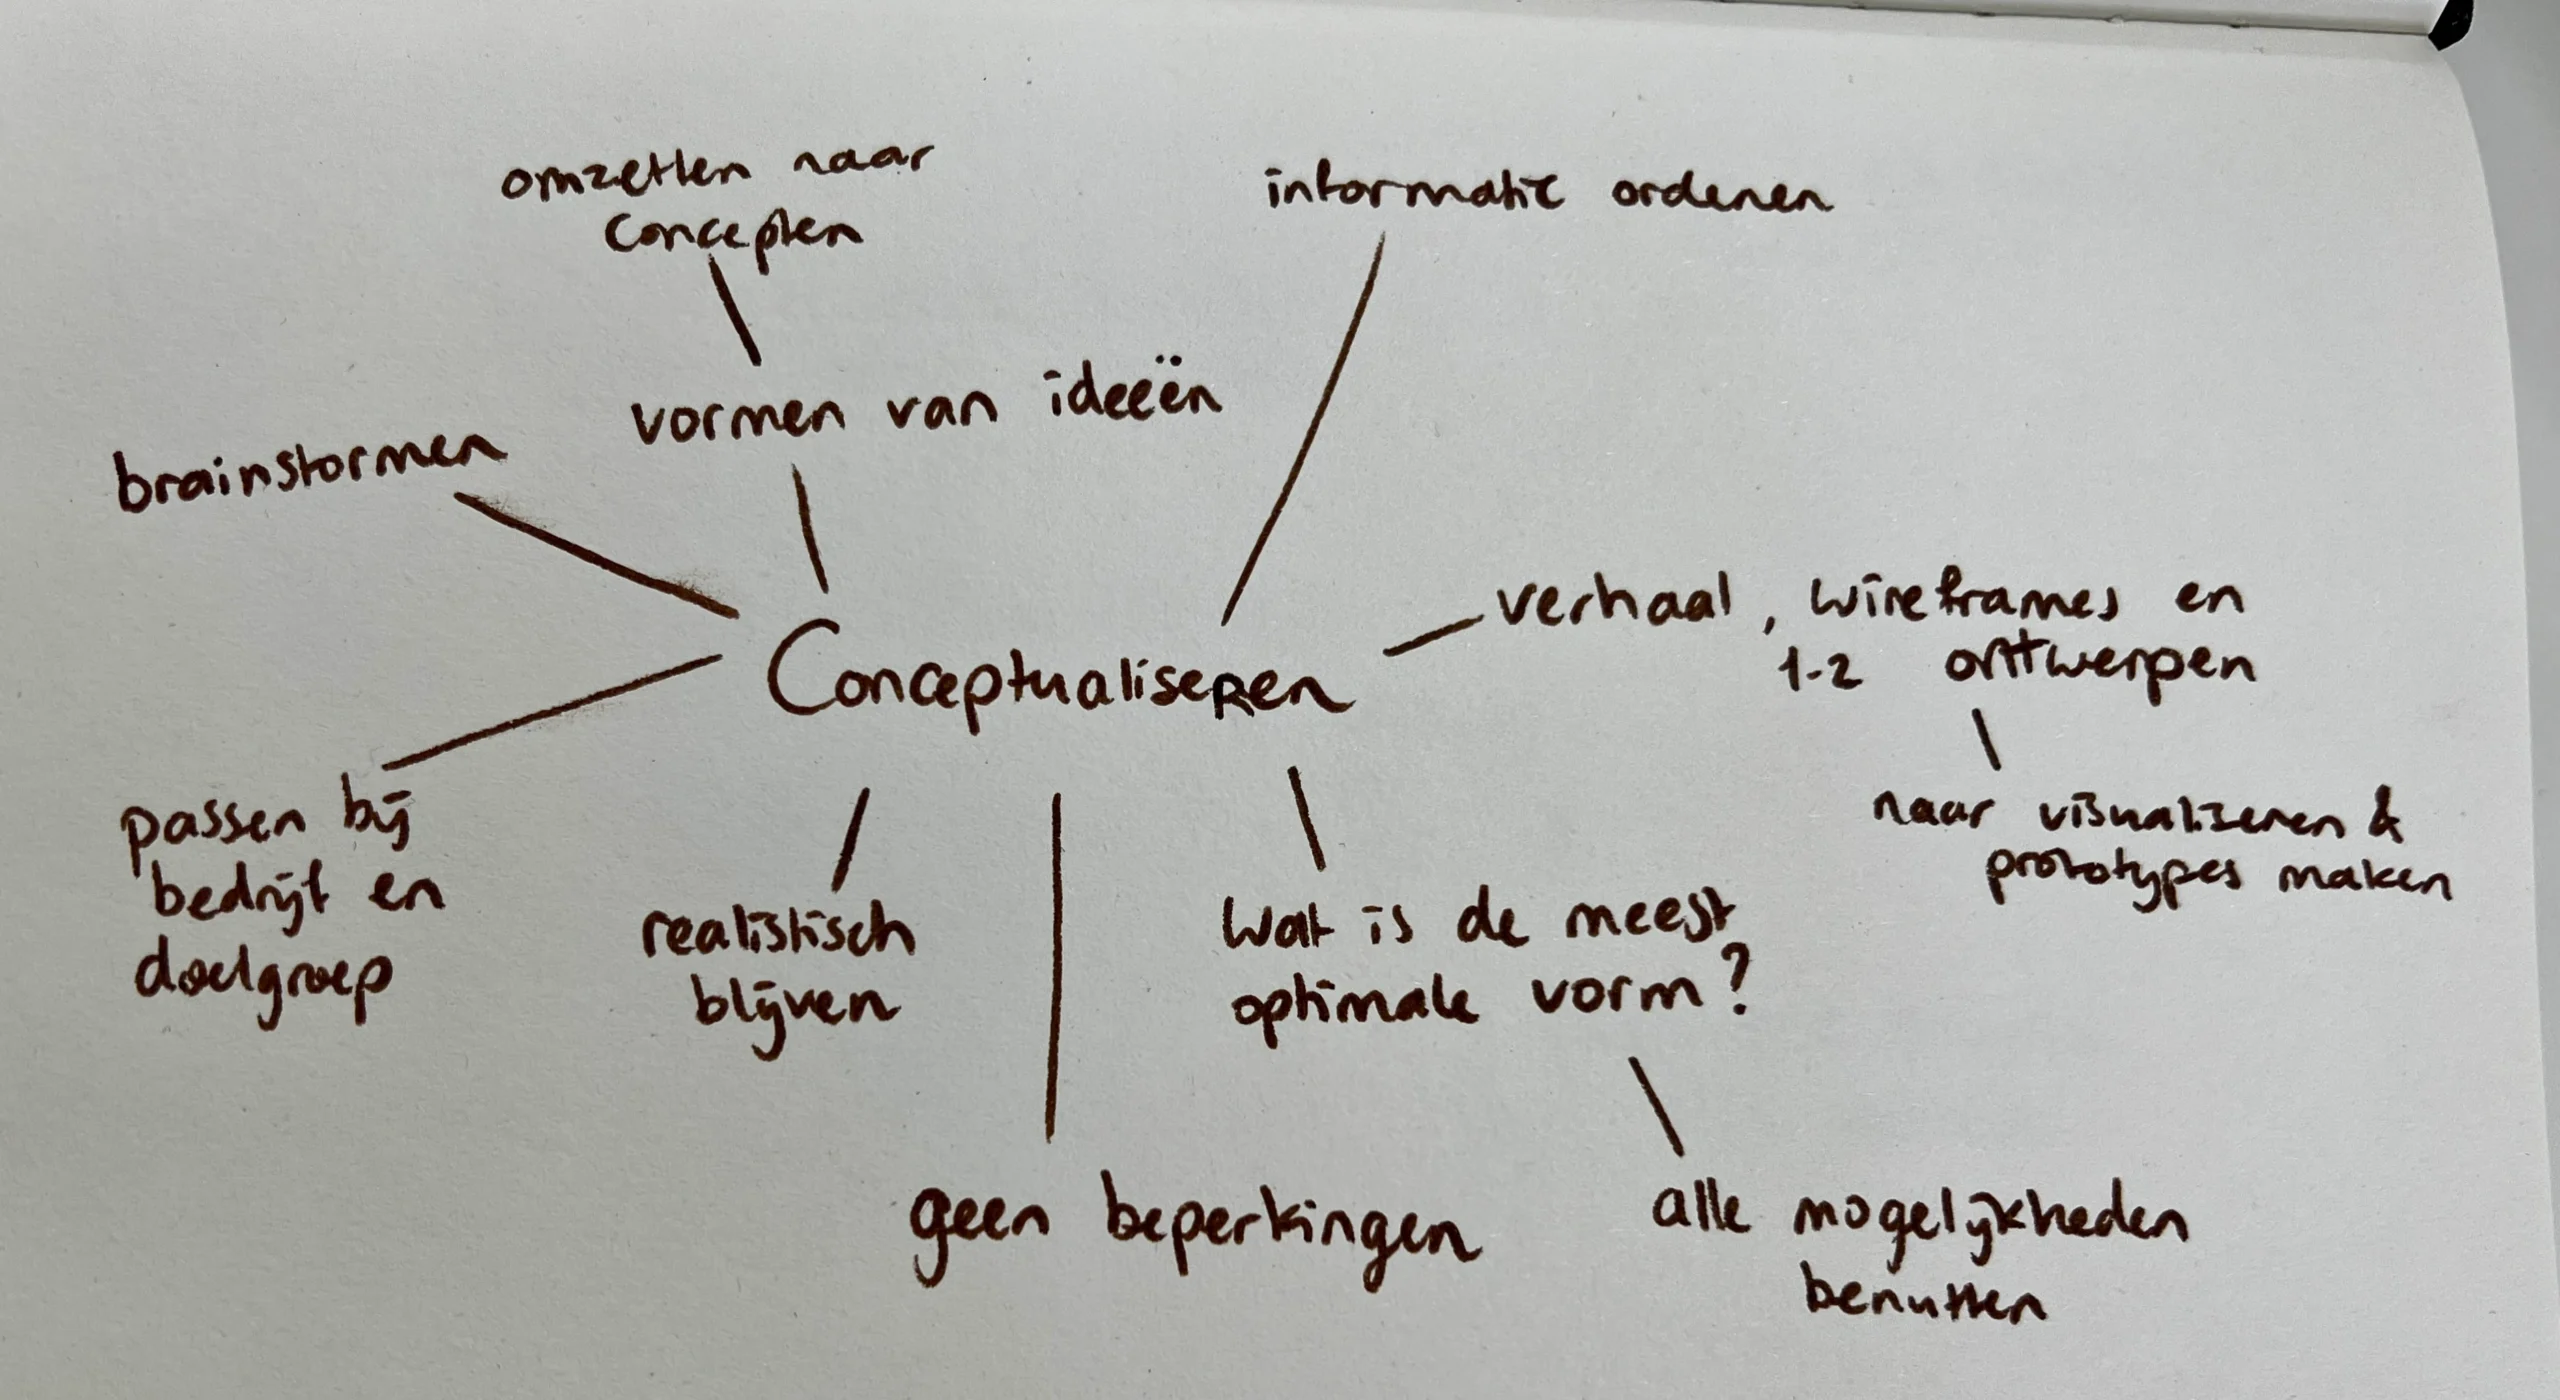 omzetten naar
concepten
informatie ordenen
vormen van ideeën
brainstormen
verhaal, wireframes en
1-2 ontwerpen
Conceptualiseren
naar visualiseren &
prototypes maken
passen bij
bedrijf en
doelgroep
realistisch
blijven
Wat is de meest
optimale vorm?
geen beperkingen
alle mogelijkheden
benutten